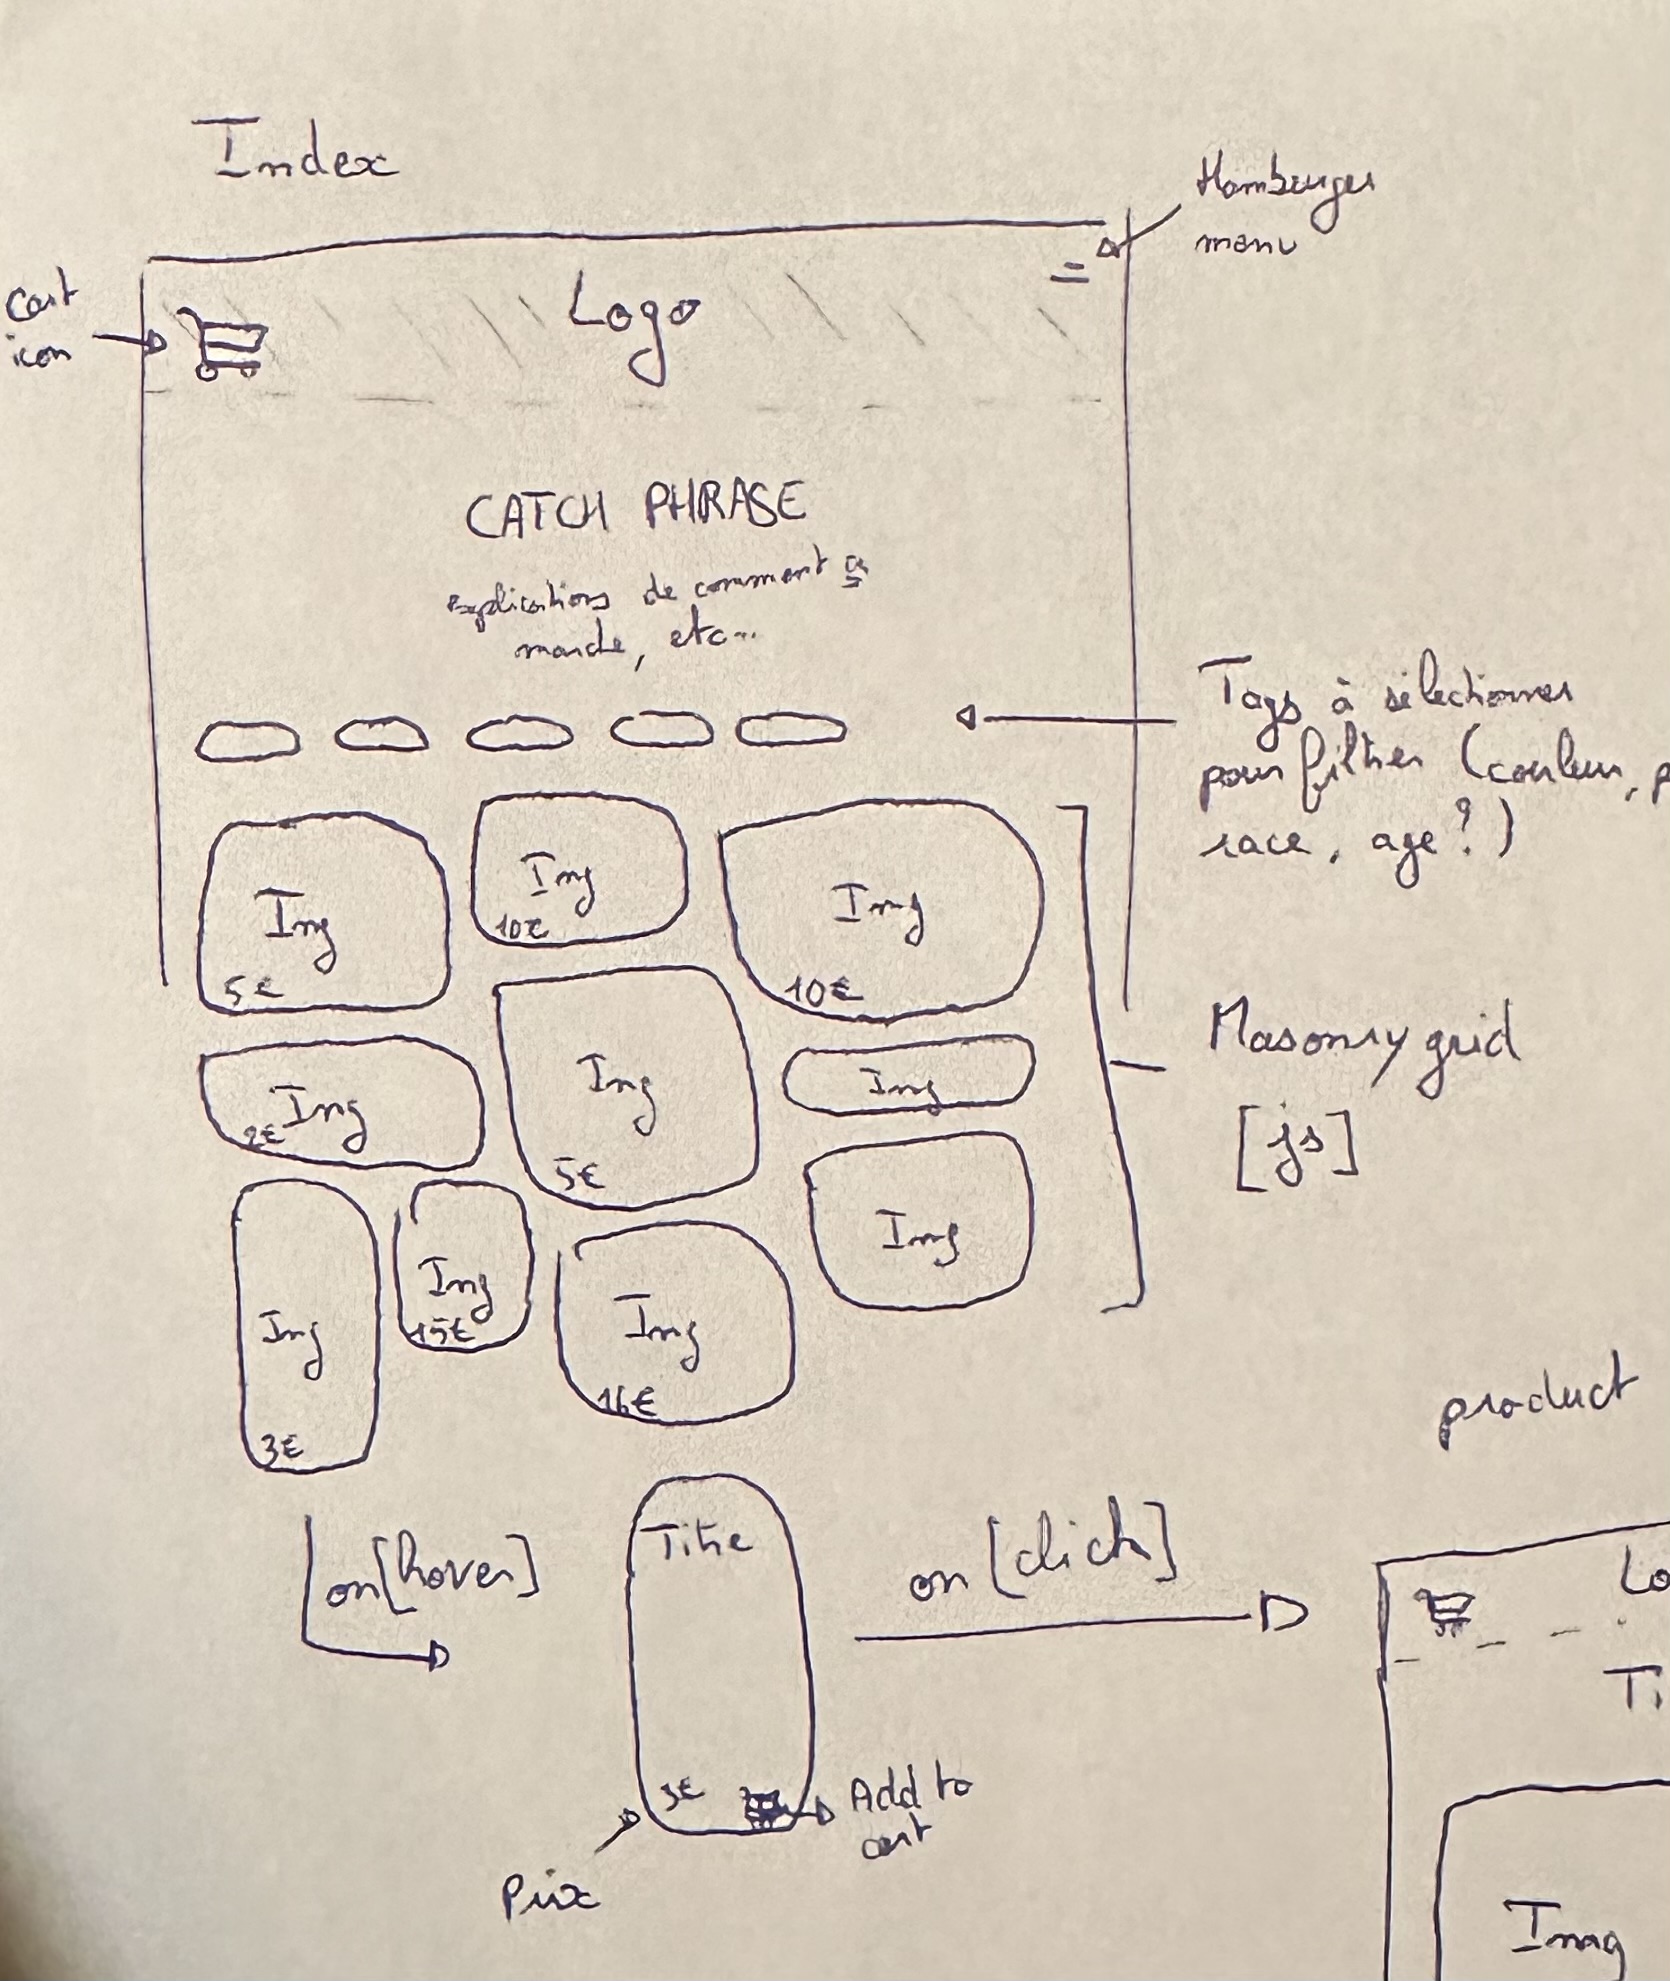 Index
Hamburger
menu
Cart
icon
Logo
CATCH PHRASE
explications de comment ça
marche, etc...
Tags à sélectionner
pour filtrer (couleur, p
race, age?)
Img
5€
Img
10€
Img
10€
Masonry grid
[js]
Img
2€
Img
5€
Img
Img
3€
Img
15€
Img
16€
Img
product
on [hover]
Titre
on [click]
3€
Add to
cart
Prix
Lo
Ti
Imag